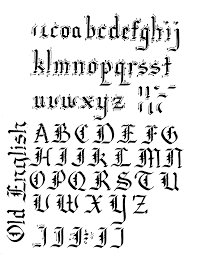 abcdefghij
klmnopqrsst
uvwxyz
ABCDEFG
HIJKLMN
OPQRSTU
VWXYZ
Old English